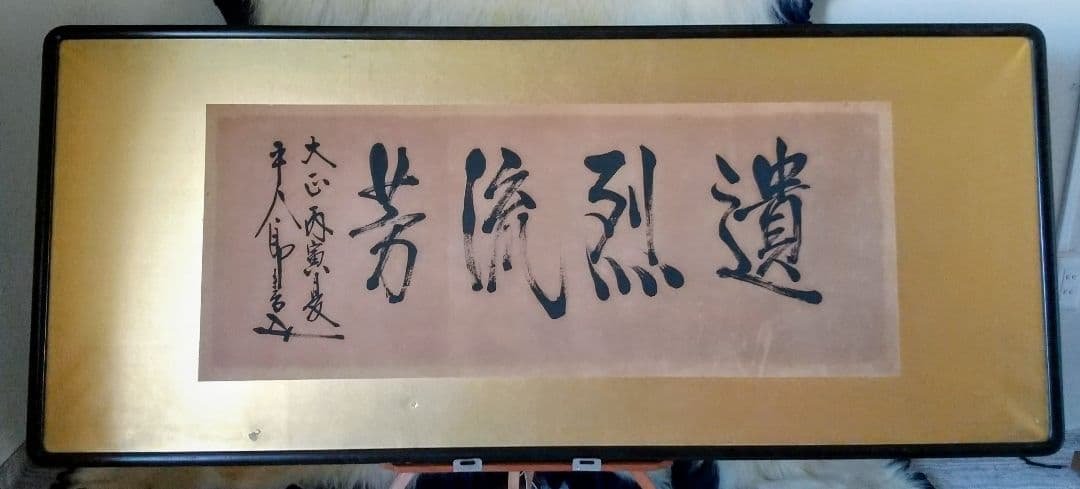 遺烈流芳
大正丙寅夏
平八郎書